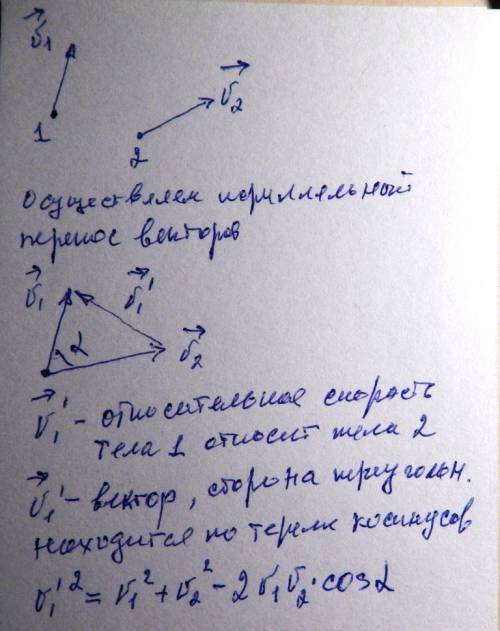 v⃗₁
1
v⃗₂
2
Осуществляем параллельный
перенос векторов
v⃗₁ v⃗₁'
α v⃗₂
v⃗₁' - относительная скорость
тела 1 относит тела 2
v⃗₁' - вектор, сторона треугольн.
находится по тереме косинусов
v₁'² = v₁² + v₂² - 2v₁v₂·cosα